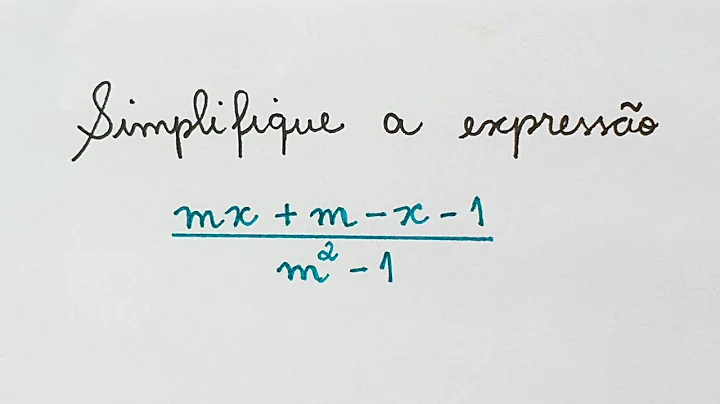 Simplifique a expressão
mx + m - x - 1
m² - 1